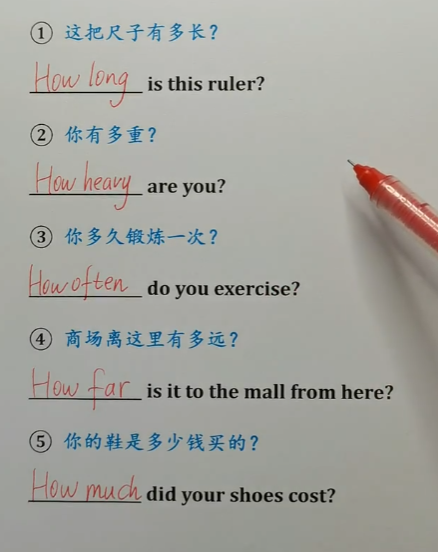 ① 这把尺子有多长？
How long is this ruler?
② 你有多重？
How heavy are you?
③ 你多久锻炼一次？
How often do you exercise?
④ 商场离这里有多远？
How far is it to the mall from here?
⑤ 你的鞋是多少钱买的？
How much did your shoes cost?